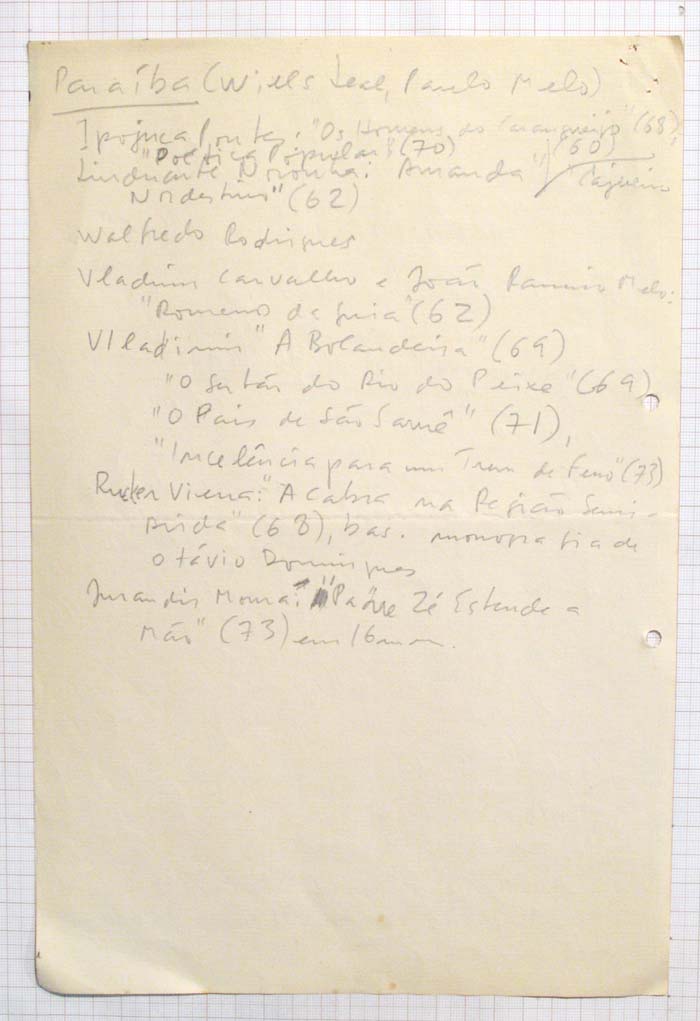 Paraíba (Wills Leal, Paulo Melo)
Ipojuca Pontes: "Os Homens do Caranguejo" (68),
"Poética Popular" (70)
Linduarte Noronha: Aruanda" (60) Cajueiro
Nordestino" (62)
Walfredo Rodrigues
Vladimir Carvalho e João Ramiro Melo:
"Romeiros da Guia" (62)
Vladimir "A Bolandeira" (69)
"O Sertão do Rio do Peixe" (69),
"O País de São Saruê" (71),
"Incelência para um Trem de Ferro" (73)
Rucker Vieira: "A Cabra na Região Semi-
Árida" (68), bas. monografia de
Otávio Domingues
Jurandir Moura: "Padre Zé Estende a
Mão" (73) em 16mm.